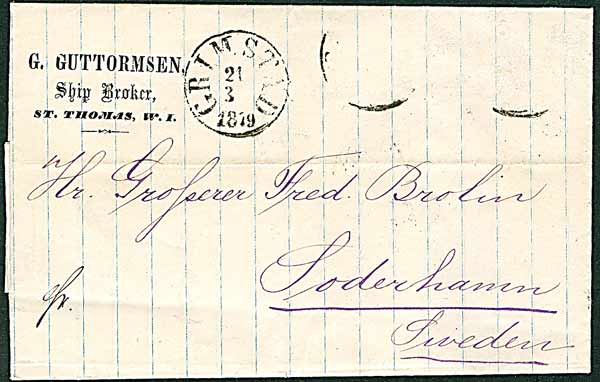 G. GUTTORMSEN,
Ship Broker,
ST. THOMAS, W. I.
GRIMSTAD
21
3
1879
Hr. Grosserer Fred. Brolin
Soderhamn
Sweden
fr.